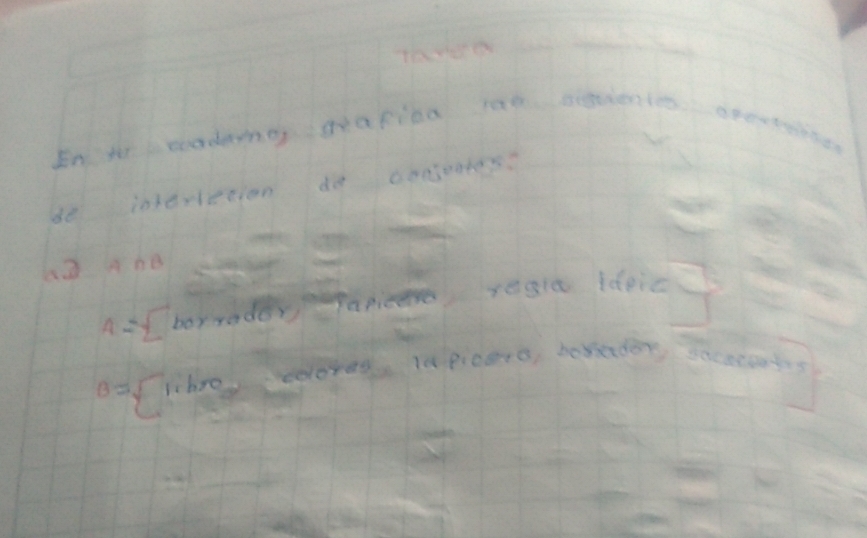 Tarea
En tu cuaderno, grafica las siguientes operaciones
de interseccion de conjuntos:
a) A ∩ B
A = { borrador, lapicero, regla lápiz }
B = { libro, colores, lapicero, borrador, }